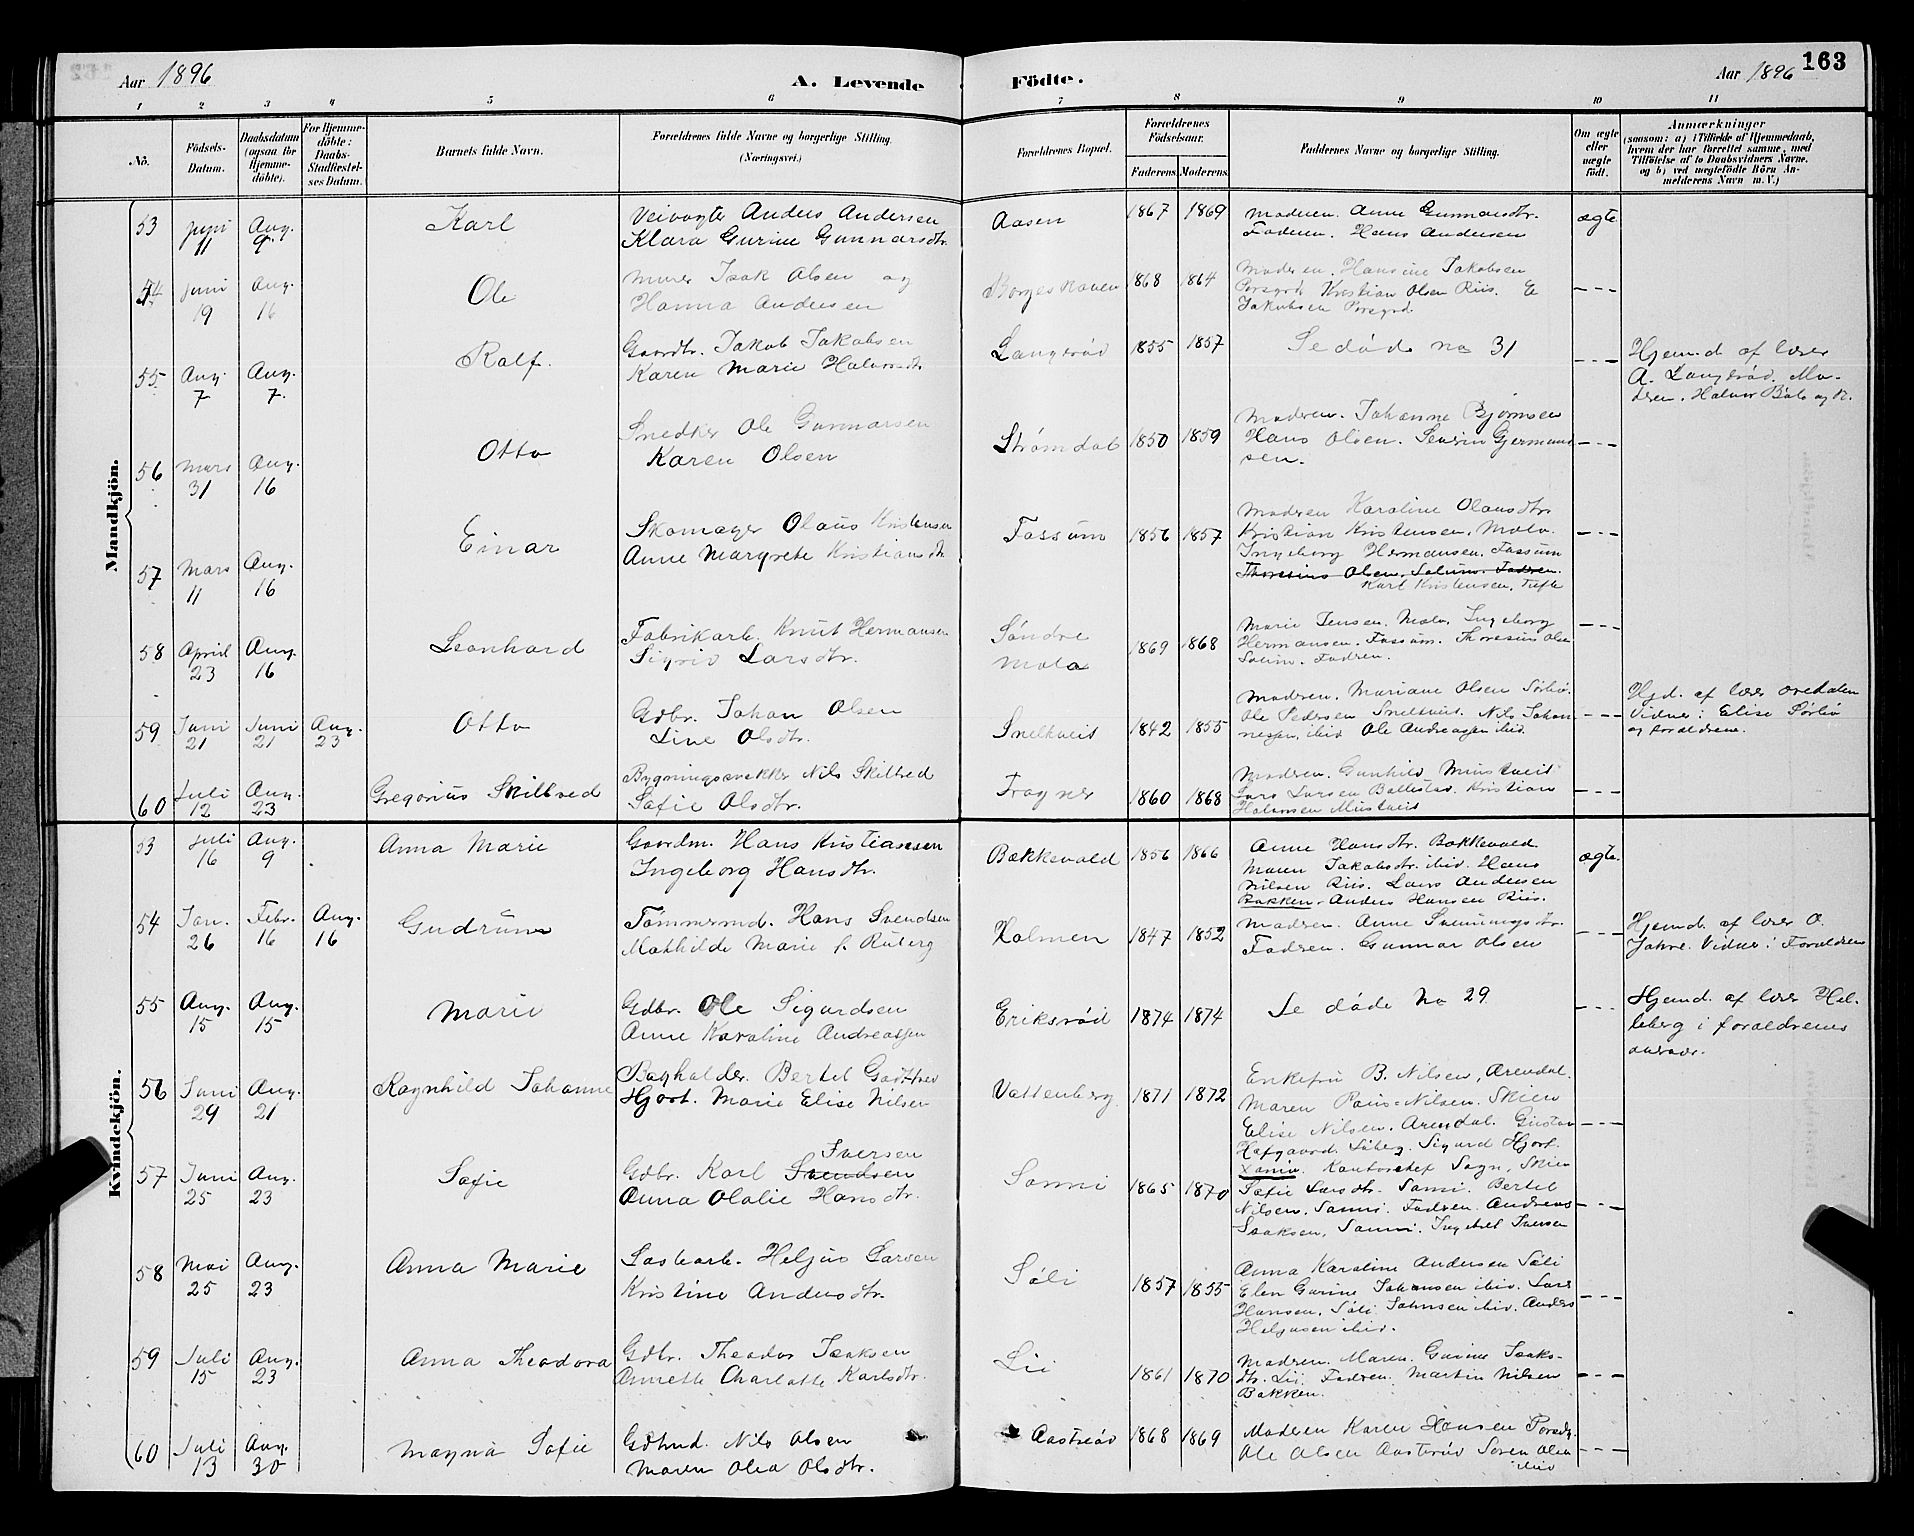 Aar 1896 A. Levende Födte. Aar 1896 163
1 2 3 4 5 6 7 8 9 10 11
No. Födsels-Datum. Daabsdatum (ogsaa for Hjemme-döbte). For Hjemme-döbte: Daabs-Stadfæstel-ses Datum. Barnets fulde Navn. Forældrenes fulde Navne og borgerlige Stilling. (Næringsvei.) Forældrenes Bopæl. Forældrenes Födselsaar. Faderens Moderens Faddernes Navne og borgerlige Stilling. Om ægte eller uægte födt. Anmærkninger (saasom: a) i Tilfælde af Hjemmedaab, hvem der har forrettet samme, med Tilföielse af to Daabsvidners Navne, og b) ved uægtefödte Börn An-melderens Navn m. V.)
Mandkjön.
53 Juni 11 Aug. 9 Karl Veivogter Anders Andersen
Klara Gurine Gunnarsdtr. Aasen 1867 1869 Moderen. Anne Gunnarsdtr.
Faderen. Hans Andersen ægte
54 Juni 19 Aug. 16 Ole Murer Isak Olsen og
Hanna Andersen Borgeskaven 1868 1864 Moderen. Hansine Jakobsen
Porsgrd Kristian Olsen Riis. E
Jakobsen Porsgrd. – – –
55 Aug. 7 Aug. 7. Ralf. Gaardbr. Jakob Jakobsen
Karen Marie Halvorsdtr. Langerød 1855 1857 Se døde no 31 – – – Hjemd. af lærer
A. Langerød. Mo-
deren. Halvor Bøle og K.
56 Mars 31 Aug. 16 Otto Snedker Ole Gunnarsen
Karen Olsen Strømdal 1850 1859 Moderen. Johanne Bjørnsen
Hans Olsen. Severin Germund
sen. – – –
57 Mars 11 Aug. 16 Einar Skomager Olaus Kristensen
Anne Margrete Kristiansdtr. Fossum 1856 1857 Modren Karoline Olausdtr.
Kristian Kristensen, Mola.
Ingeborg Hermansen. Fossum
Thoresius Olsen. Solum. Fadren.
Karl Kristensen, Tufte – – –
58 April 23 Aug. 16 Leonhard Fabrikarb. Knut Hermansen
Sigrid Larsdtr. Søndre
Mola 1869 1868 Marie Jensen. Mola. Ingeborg
Hermansen. Fossum. Thoresius Olse
Solum. Fadren. – – –
59 Juni 21 Juni 21 Aug. 23 Otto Gdbr. Johan Olsen
Line Olsdtr. Snelkveis 1842 1855 Modren. Mariane Olsen Sørbø.
Ole Pedersen Snelkveis. Nils Johan
nessen, ibid. Ole Andreassen ibid. – – – Hjd. af lærer Aredalen
Vidner: Elise Sørbø
og forældrene.
60 Juli 12 Aug. 23 Gregorius Skilbred Bygningssnekker Nils Skilbred
Sofie Olsdtr. Frogner 1860 1868 Modren. Gunhild Mustveit
Lars Larsen Ballestad. Kristian
Halvorsen Mustveit – – –
Kvindekjön.
53 Juli 16 Aug. 9 Anna Marie Gaardm. Hans Kristiansen
Ingeborg Hansdtr. Bakkevold 1856 1866 Anne Hansdtr. Bakkevold
Maren Jakobsdtr. ibid. Hans
Nilsen Riis. Lars Andersen
Bakken. Anders Hansen Riis. ægte.
54 Jan. 26 Febr. 16 Aug. 16 Gudrun Tømmermd. Hans Svendsen
Mathilde Marie f. Ruberg Holmen 1847 1852 Modren. Anne Svenningsdtr.
Fadren. Gunnar Olsen – – – Hjemd. af lærer O.
Jahre. Vidner: Forældrene
55 Aug. 15 Aug. 15 Marie Gdbr. Ole Sigurdsen
Anne Karoline Andreassen Eriksrød 1874 1874 Se døde No 29 – – – Hjemd. af lærer Hel-
leberg i forældrenes
nærvær.
56 Juni 29 Aug. 21 Ragnhild Johanne Bogholder. Bertel
Hjort. Marie Elise Nilsen Vattenberg 1871 1872 Enkefru B. Nilsen, Arendal.
Maren Paus-Nilsen. Skien
Elise Nilsen. Arendal. Gustav
Hafgaard. Løberg. Sigurd Hjort.
Xania. Kontorchef Sogn, Skien – – –
57 Juni 25 Aug. 23 Sofie Iversen
Gdbr. Karl Svendsen
Anna Olalie Hansdtr. Sanni 1865 1870 Sofie Larsdtr. Sanni. Bertel
Nilsen. Sanni. Fadren. Andreas
Isaksen, Sanni. Ingebret Iversen – – –
58 Mai 25 Aug. 23 Anna Marie Lostearb. Heljus Larsen
Kristine Andersdtr. Søli 1857 1855 Anna Karoline Andersen Søli
Elen Gurine Johansen ibid. Lars
Hansen, Søli Johnsen ibid. Anders
Heljusen ibid. – – –
59 Juli 15 Aug. 23 Anna Theodora Gdbr. Theodor Isaksen
Annette Charlotte Karlsdtr. Lii 1861 1870 Modren. Maren. Gurine Isaks-
dtr. Lii. Fadren. Martin Nilsen
Bakken. – – –
60 Juli 13 Aug. 30 Magna Sofie Gdmd. Nils Olsen
Maren Olea Olsdtr. Aasterød 1868 1869 Modren Karen Hansen Porsg.
Ole Olsen Aasterød Soren Olsen
ibid – – –